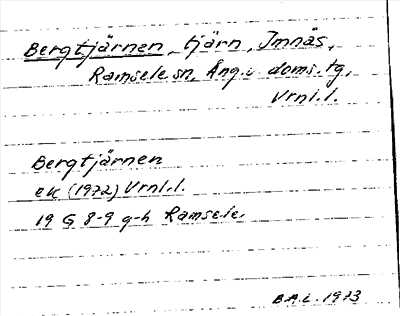 Bergtjärnen, tjärn, Imnäs,
Ramsele sn, Ång.u doms.tg,
Vrnl.l.
Bergtjärnen
ek (1972) Vrnl.l.
19 G 8-9 g-h Ramsele.
B.A.L. 1973